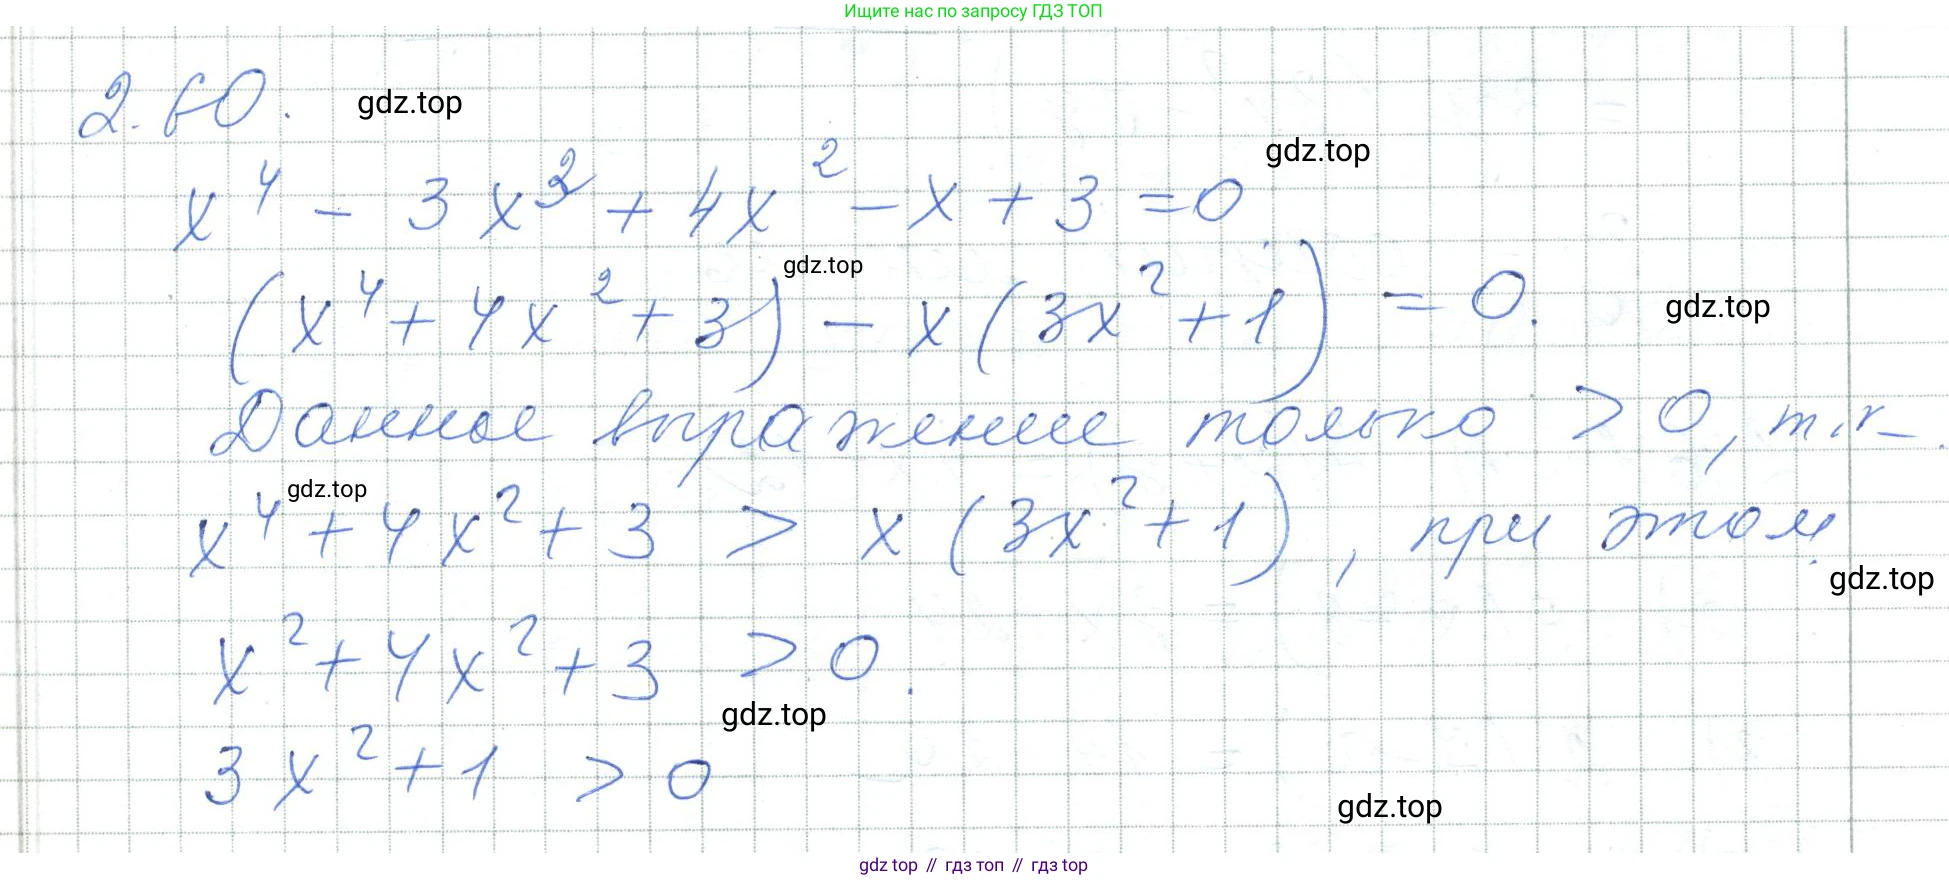 Ищите нас по запросу ГДЗ ТОП
2.60. gdz.top
x⁴ - 3x³ + 4x² - x + 3 = 0 gdz.top
gdz.top
(x⁴ + 4x² + 3) - x(3x² + 1) = 0. gdz.top
Данное выражение только > 0, т.к.
gdz.top
x⁴ + 4x² + 3 > x(3x² + 1), при этом
gdz.top
x² + 4x² + 3 > 0.
gdz.top
3x² + 1 > 0
gdz.top
gdz top // гдз топ // гдз top